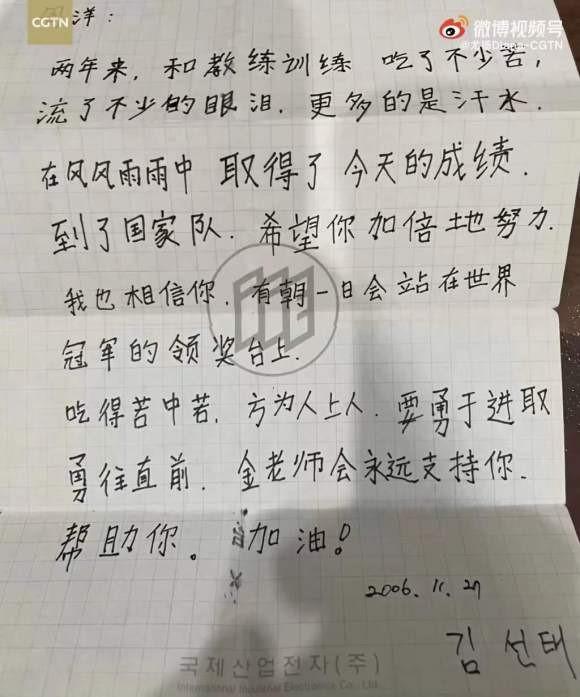 CGTN
微博视频号
@龙语Diana-CGTN
周洋:
两年来, 和教练训练 吃了不少苦,
流了不少的眼泪. 更多的是汗水.
在风风雨雨中 取得了 今天的成绩.
到了国家队. 希望你加倍地努力.
我也相信你. 有朝一日会站在世界
冠军的领奖台上.
吃得苦中苦, 方为人上人. 要勇于进取
勇往直前. 金老师会永远支持你.
帮助你。 加油!
2006. 11. 27
김 선태
국제산업전자(주)
International Industrial Electronics Co., Ltd.